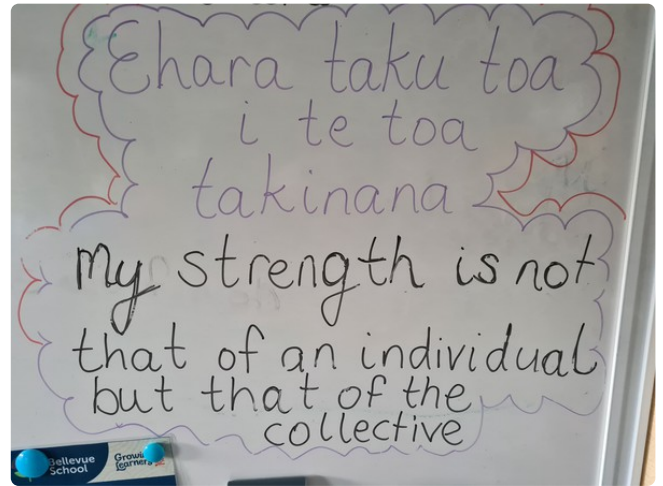 Ehara taku toa
i te toa
takinana
My strength is not
that of an individual
but that of the
collective
Bellevue
School
Growing
learners